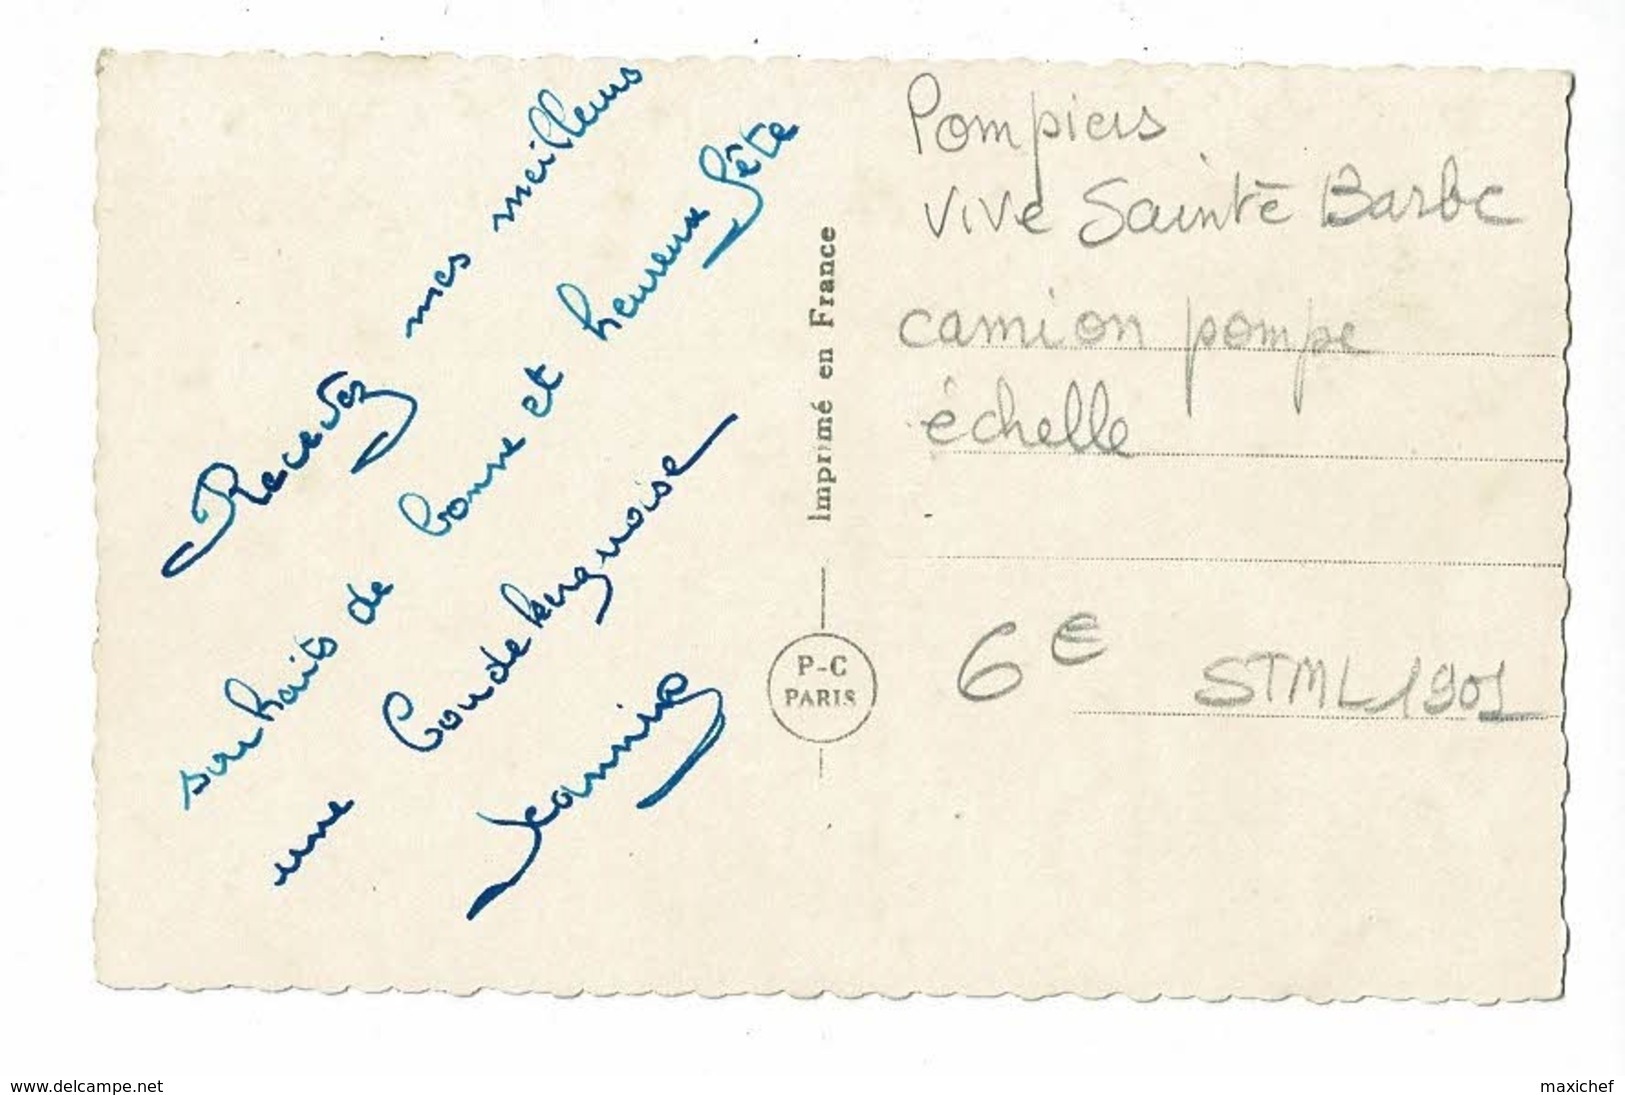 Recevez mes meilleurs
souhaits de bonne et heureuse fête
une Coudekerquoise
Jeannine
Imprimé en France
P-C
PARIS
Pompiers
vive Sainte Barbe
camion pompe
échelle
6 E
STML1901
www.delcampe.net
maxichef